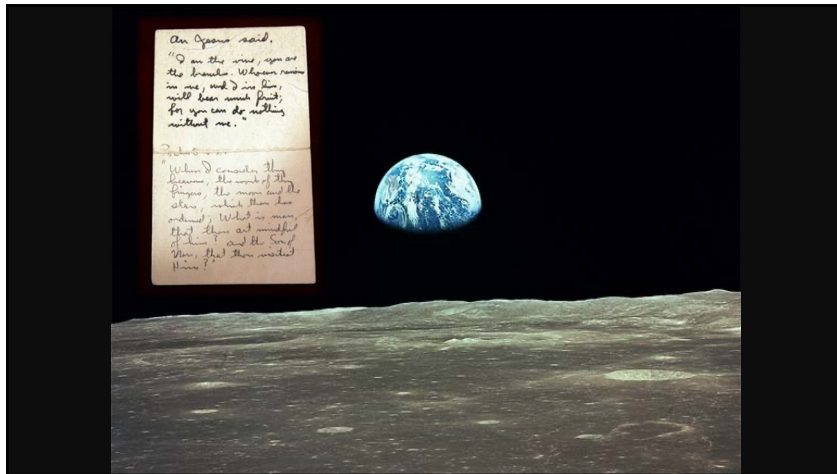 as Jesus said,
"I am the vine, you are
the branches. Whoever remains
in me, and I in him,
will bear much fruit;
for you can do nothing
without me."
"When I consider thy
heavens, the work of thy
fingers, the moon and the
stars, which thou has
ordained; What is man,
that thou art mindful
of him? and the Son of
Man, that thou visitest
Him?"